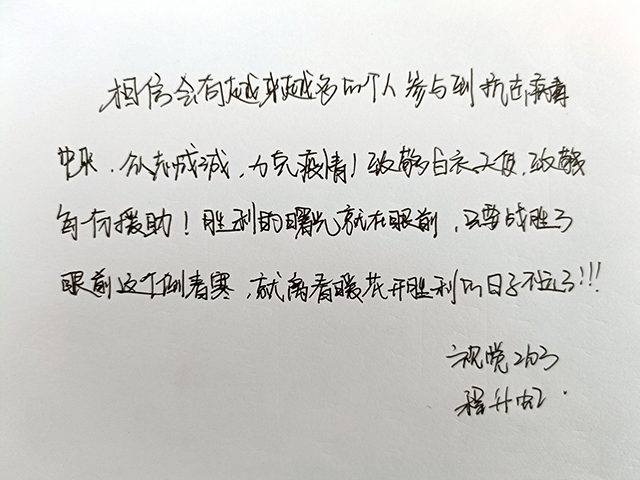 相信会有越来越多的个人参与到抗击病毒
中来，众志成城，力克疫情！致敬白衣天使，致敬
每一份援助！胜利的曙光就在眼前，只要战胜了
眼前这个倒春寒，就离春暖花开胜利的日子不远了!!!
视觉2103
程升